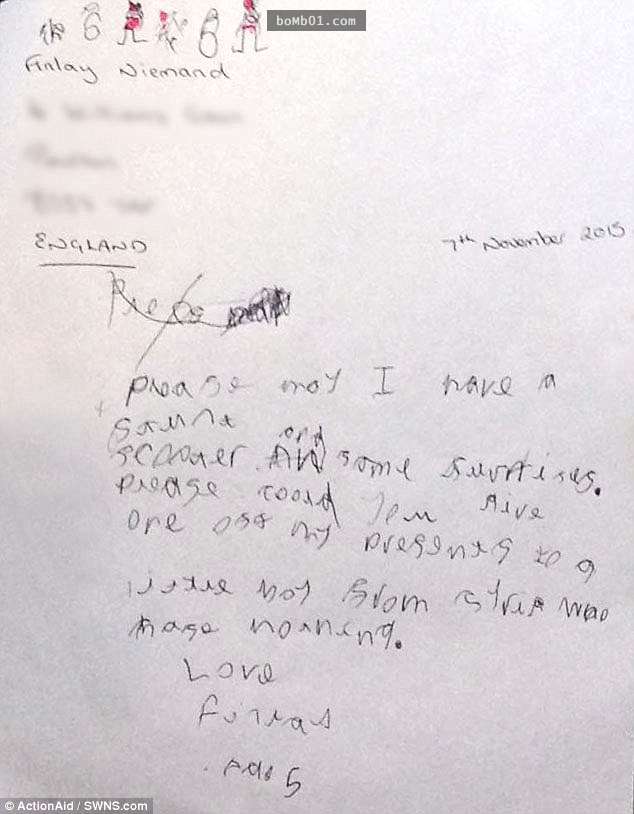 boMb01.com
Finlay Niemand
ENGLAND
7th November 2015
please may I have a
stunt
scooter and some surprises.
please could you give
one off my presents to a
little boy from syria who
hase nothing.
Love
Finlay
Age 5
© ActionAid / SWNS.com